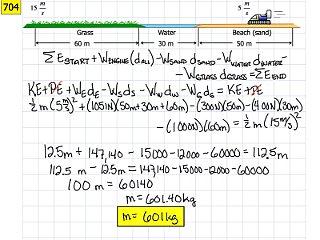 704
15 m/s
5 m/s
Grass Water Beach (sand)
60 m 30 m 50 m
ΣE_START + W_ENGINE(d_ALL) - W_SAND d_SAND - W_WATER d_WATER
- W_GRASS d_GRASS = ΣE_END
KE + PE + W_E d_E - W_S d_S - W_W d_W - W_G d_G = KE + PE
½m(5 m/s)² + (1051N)(50m+30m+60m) - (300N)(50m) - (400N)(30m)
- (1000N)(60m) = ½m(15 m/s)²
12.5m + 147,140 - 15000 - 12000 - 60000 = 112.5m
112.5m - 12.5m = 147,140 - 15000 - 12000 - 60000
100 m = 60140
m = 601.40kg
m = 601kg